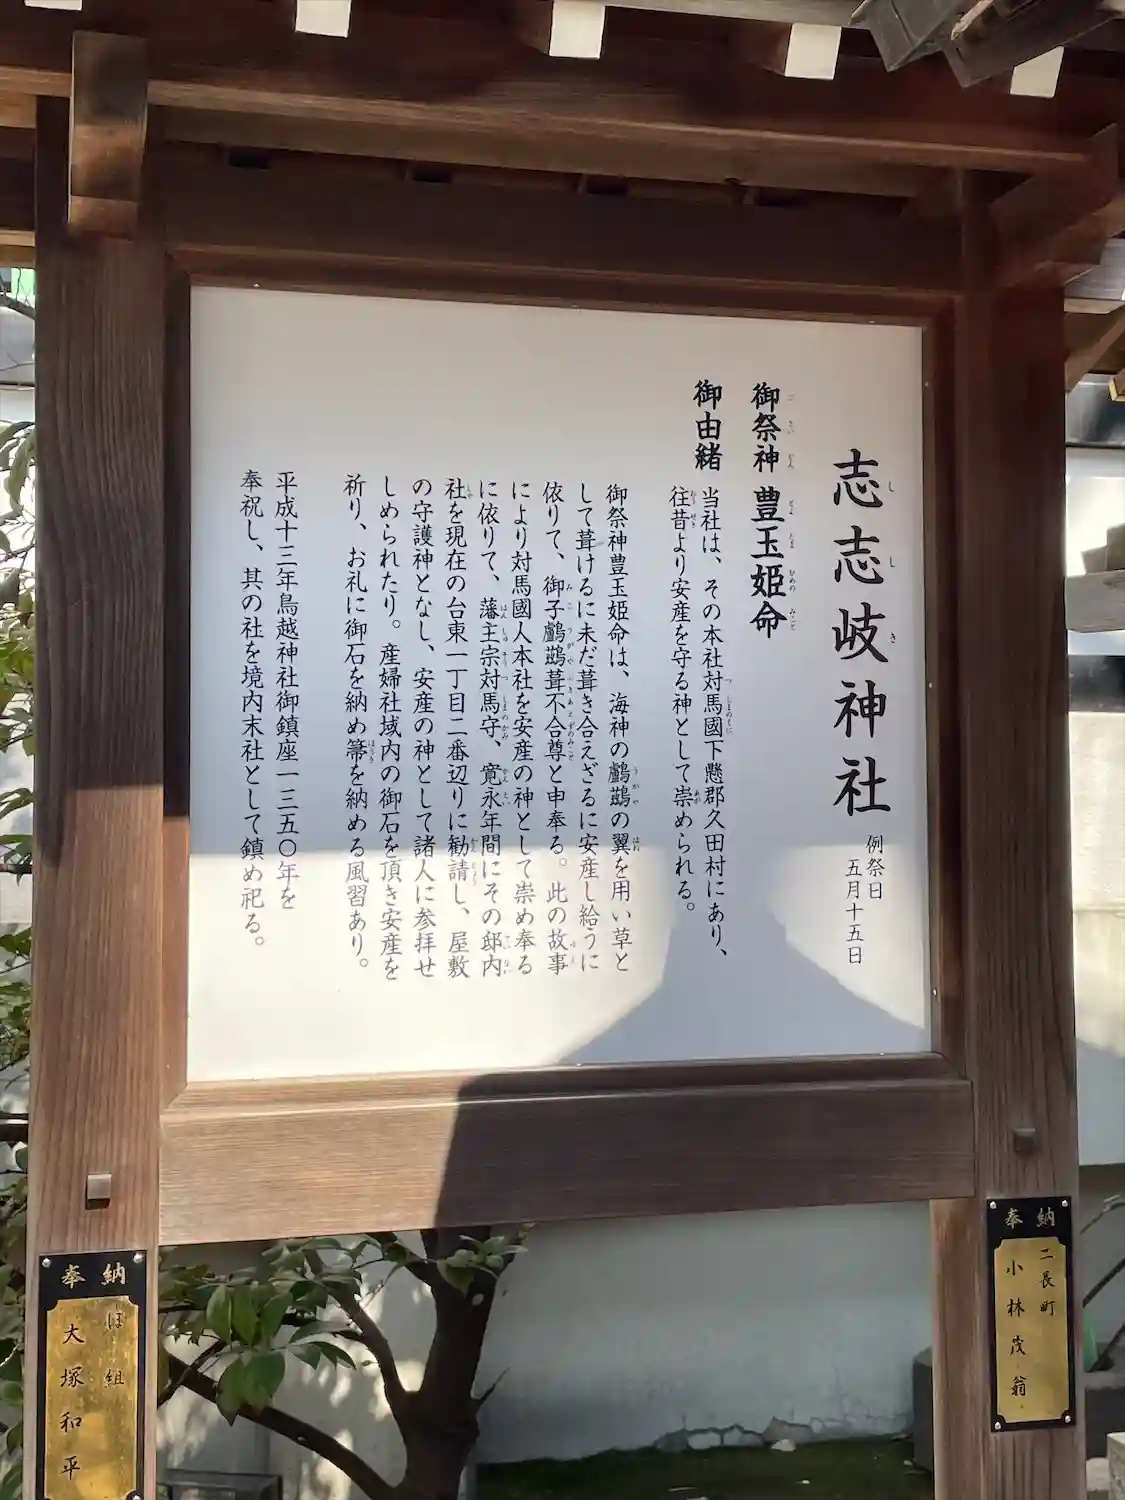 志志岐神社
例祭日
五月十五日
御祭神 豊玉姫命
御由緒
当社は、その本社対馬國下懸郡久田村にあり、
往昔より安産を守る神として崇められる。
御祭神豊玉姫命は、海神の鸕鷀の翼を用い草と
して葺けるに未だ葺き合えざるに安産し給うに
依りて、御子鸕鷀葺不合尊と申奉る。此の故事
により対馬國人本社を安産の神として崇め奉る
に依りて、藩主宗対馬守、寛永年間にその邸内
社を現在の台東一丁目二番辺りに勧請し、屋敷
の守護神となし、安産の神として諸人に参拝せ
しめられたり。産婦社域内の御石を頂き安産を
祈り、お礼に御石を納め箒を納める風習あり。
平成十三年鳥越神社御鎮座一三五〇年を
奉祝し、其の社を境内末社として鎮め祀る。
奉納
二長町
小林茂翁
奉納
ほ組
大塚和平